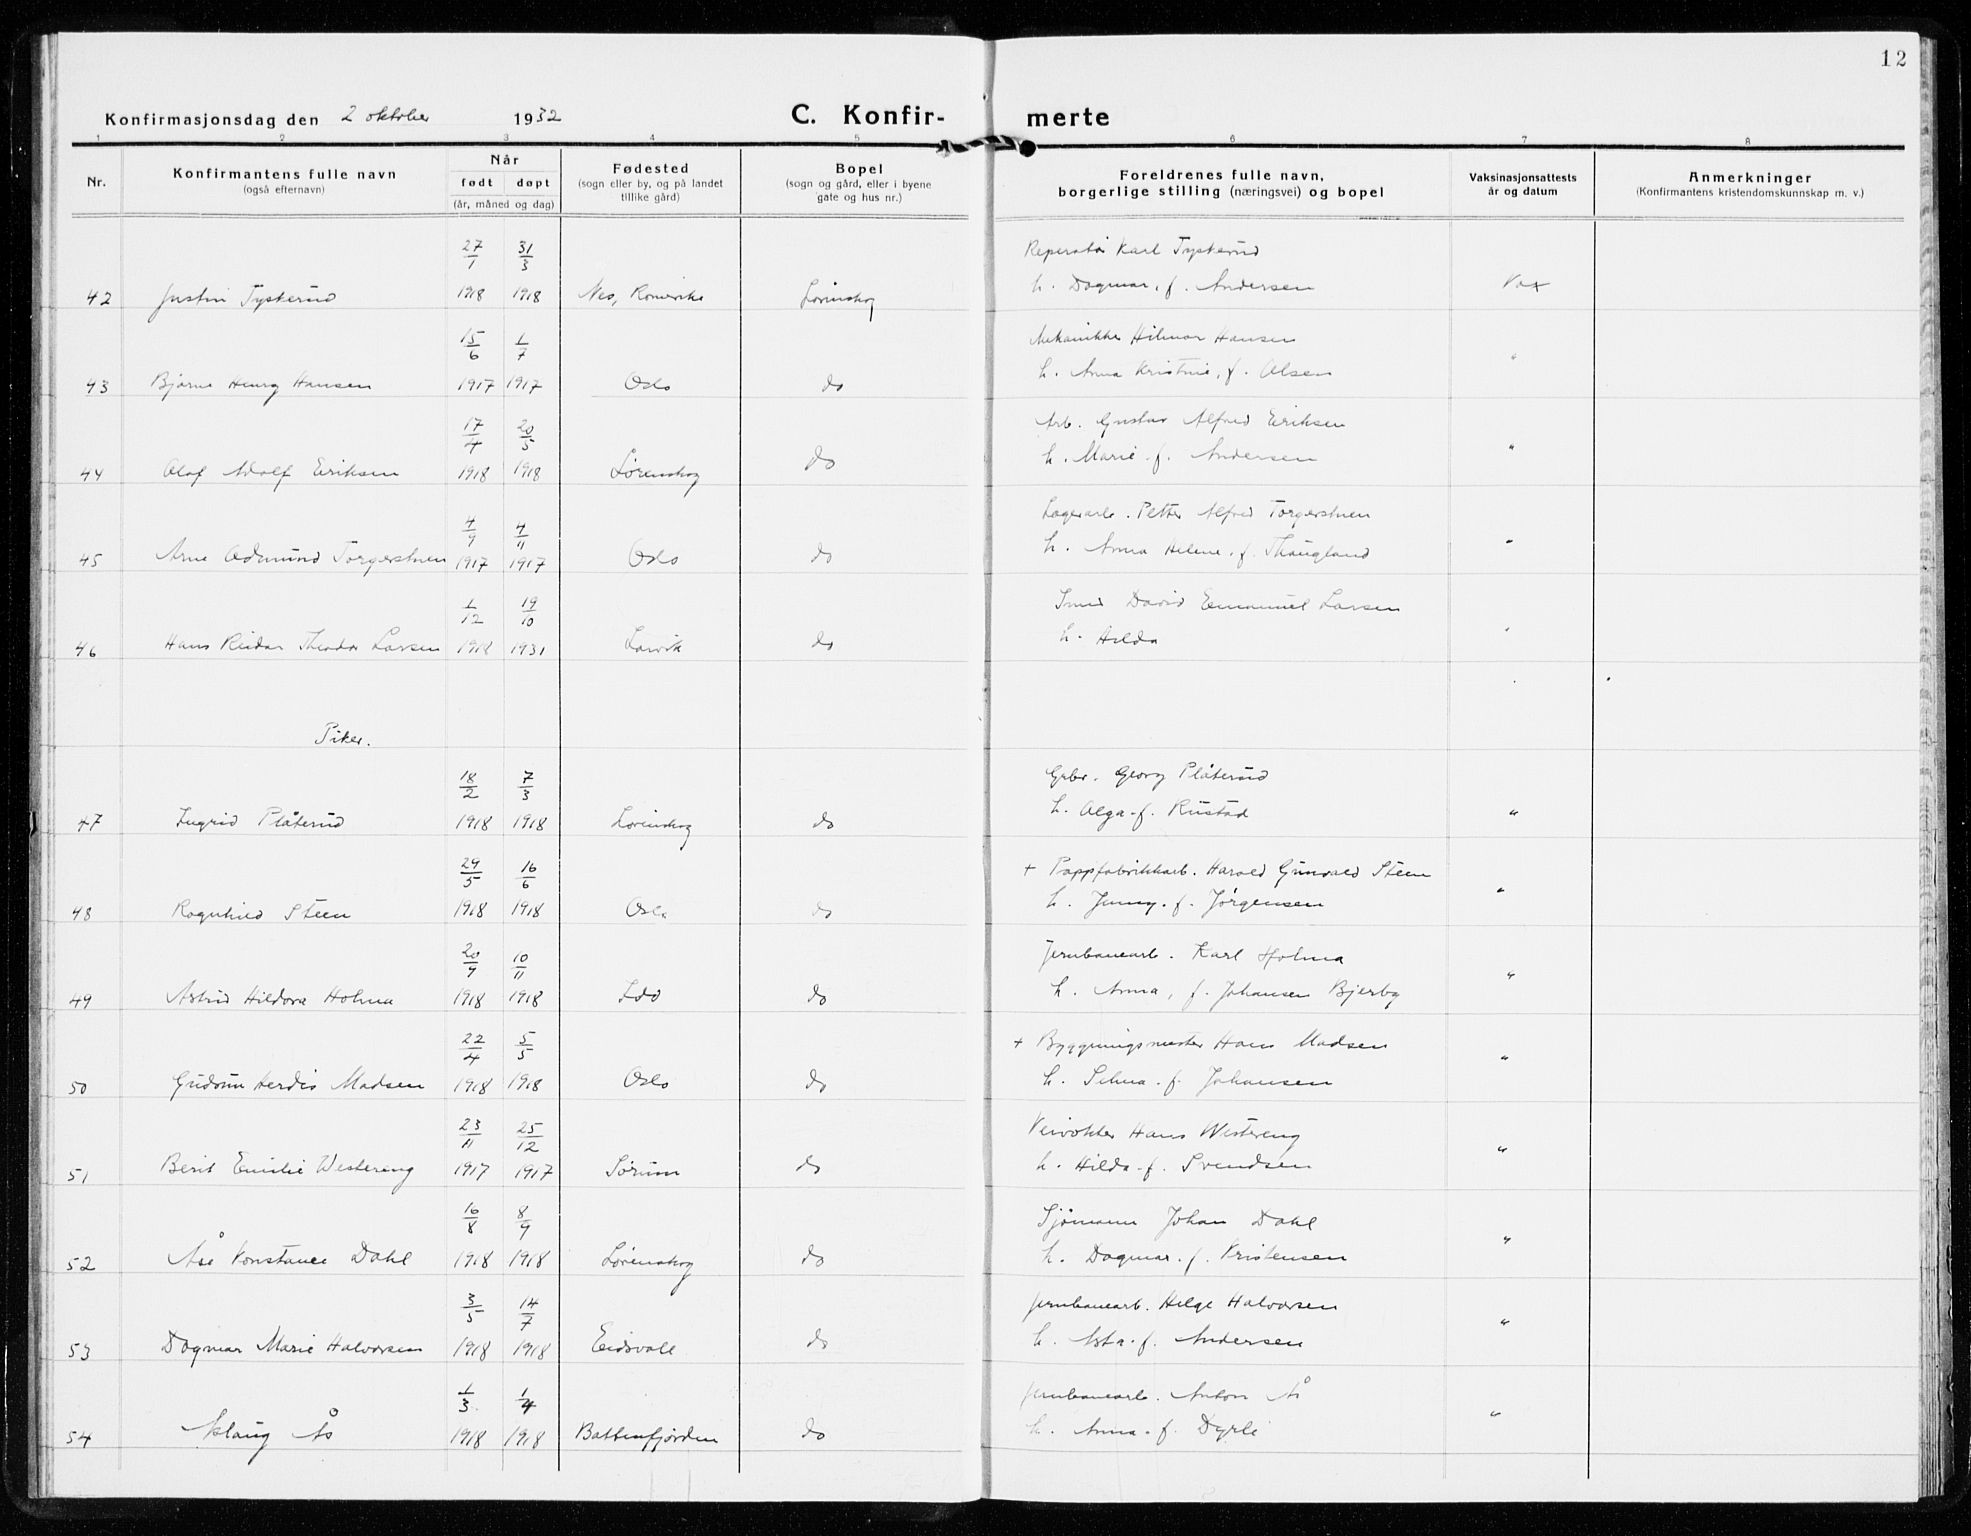 12
Konfirmasjonsdag den 2 oktober 1932
C. Konfir-
merte
1 2 3 4 5 6 7 8
Nr.
Konfirmantens fulle navn
(også efternavn)
Når
født døpt
(år, måned og dag)
Fødested
(sogn eller by, og på landet
tillike gård)
Bopel
(sogn og gård, eller i byene
gate og hus nr.)
Foreldrenes fulle navn,
borgerlige stilling (næringsvei) og bopel
Vaksinasjonsattests
år og datum
Anmerkninger
(Konfirmantens kristendomskunnskap m. v.)
27/1 31/3 Reperatør Karl Tysterud
42 Justin Tysterud 1918 1918 Nes, Romerike Lørenskog h. Dagmar, f. Andersen Vax
15/6 1/7 Mekaniker Hilmar Hansen
43 Bjarne Henry Hansen 1917 1917 Oslo do h. Anna Kristine, f. Olsen "
17/4 20/5 Arb. Gustav Alfred Eriksen
44 Olaf Adolf Eriksen 1918 1918 Lørenskog do h. Marie f. Andersen "
4/9 4/11 Lagerarb. Petter Alfred Torgerstuen
45 Arne Odmund Torgerstuen 1917 1917 Oslo do h. Anna Helene, f. Thaugland "
1/12 19/10 Smed David Emanuel Larsen
46 Hans Reidar Theodor Larsen 1918 1931 Larvik do h. Hilda "
Piker.
18/2 7/3 Grbr. Georg Plåterud
47 Ingrid Plåterud 1918 1918 Lørenskog do h. Olga f. Rustad "
29/5 16/6 + Pappfabrikkarb. Harald Gunvald Steen
48 Ragnhild Steen 1918 1918 Oslo do h. Jenny f. Jørgensen "
20/9 10/11 Jernbanearb. Karl Holma
49 Astrid Hildora Holma 1918 1918 Idd do h. Anna, f. Johansen Bjerby "
22/4 5/5 + Byggningsmester Hans Madsen
50 Gudrun Herdis Madsen 1918 1918 Oslo do h. Selma f. Johansen "
23/11 25/12 Veivokter Hans Westereng
51 Berit Emilie Westereng 1917 1917 Sørum do h. Hilda f. Svendsen "
16/8 8/9 Sjømann Johan Dahl
52 Åse Konstance Dahl 1918 1918 Lørenskog do h. Dagmar f. Kristensen "
3/5 14/7 Jernbanearb. Helge Halvorsen
53 Dagmar Marie Halvorsen 1918 1918 Eidsvoll do h. Asta f. Andersen "
1/3 1/4 Jernbanearb. Anton Ås
54 Aslaug Ås 1918 1918 Battenfjorden do h. Anna f. Dyrli "